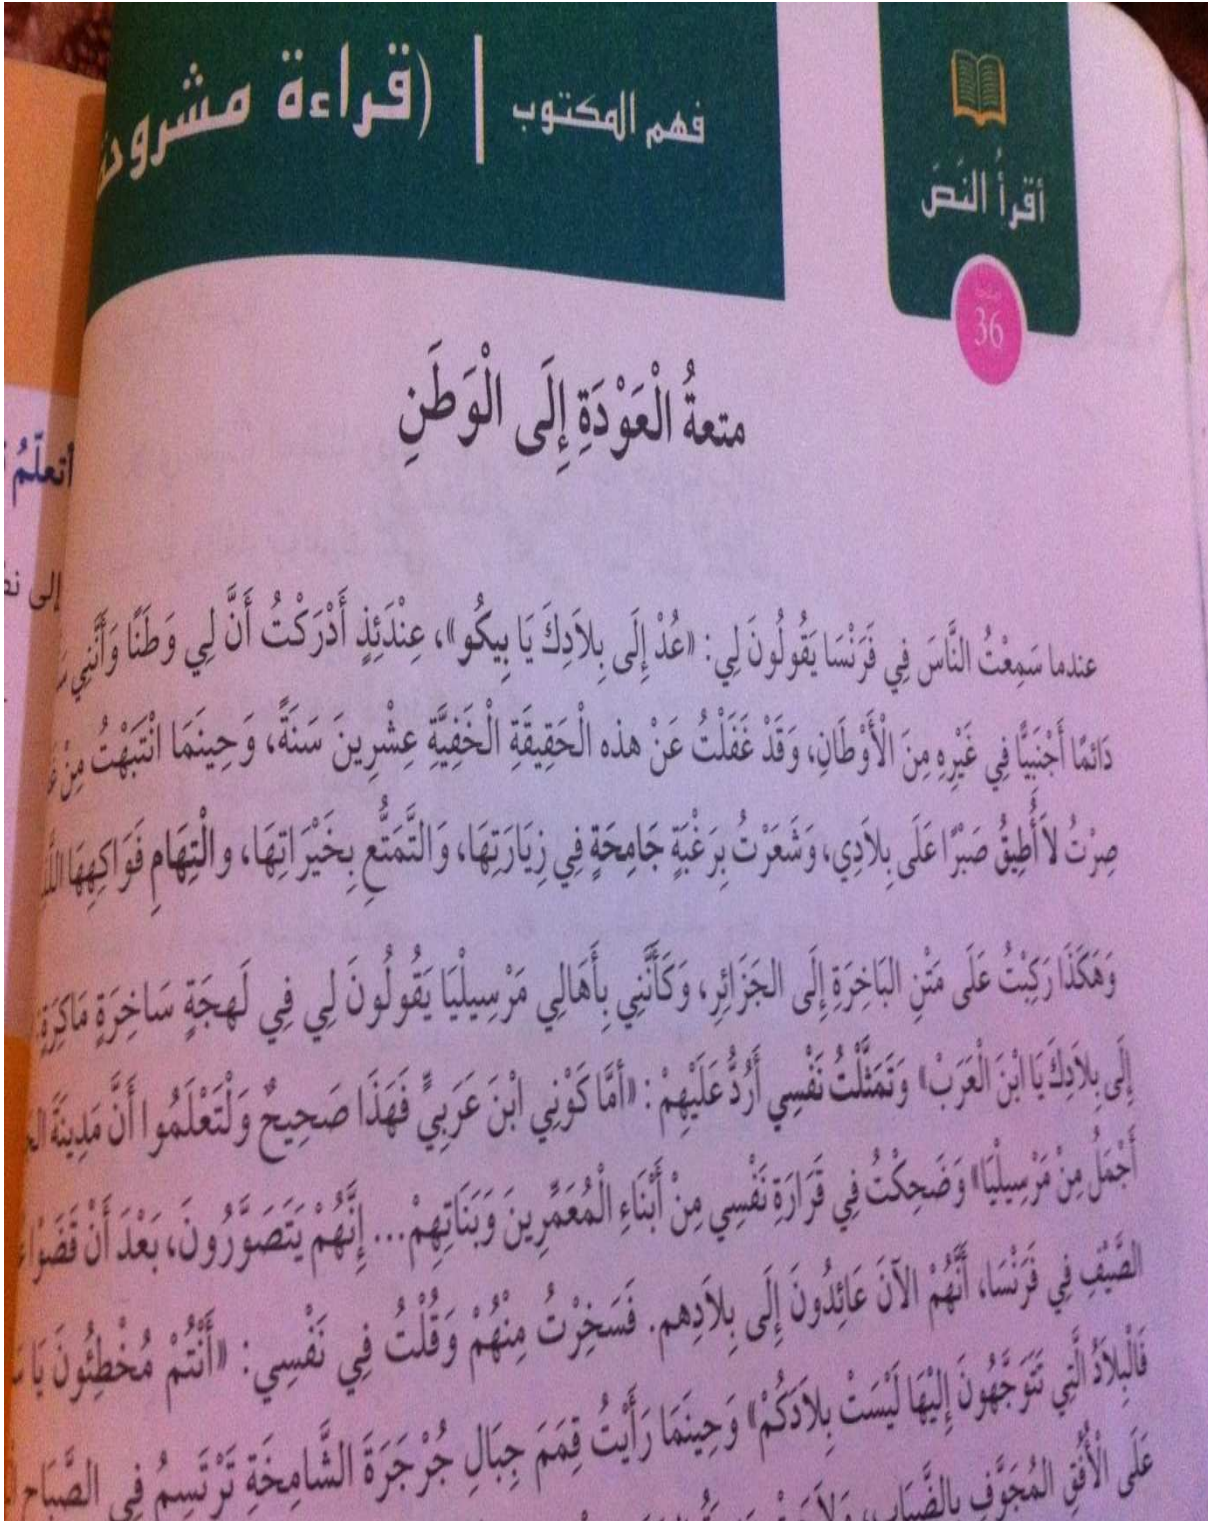 فهم المكتوب | (قراءة مشروحة
أقرأُ النَصَ
صفحة
36
متعةُ الْعَوْدَةِ إِلَى الْوَطَنِ
أتعلّمُ
إلى
عندما سَمِعْتُ النَّاسَ فِي فَرَنْسَا يَقُولُونَ لِي: «عُدْ إِلَى بِلاَدِكَ يَا بِيكُو»، عِنْدَئِذٍ أَدْرَكْتُ أَنَّ لِي وَطَنًا وَأَنَّنِي
دَائمًا أَجْنَبِيًّا فِي غَيْرِهِ مِنَ الْأَوْطَانِ، وَقَدْ غَفَلْتُ عَنْ هذه الْحَقِيقَةِ الْخَفِيَّةِ عِشْرِينَ سَنَةً، وَحِينَمَا انْتَبَهْتُ مِنْ
صِرْتُ لاَ أُطِيقُ صَبْرًا عَلَى بِلاَدِي، وَشَعَرْتُ بِرَغْبَةٍ جَامِحَةٍ فِي زِيَارَتِهَا، وَالتَّمَتُّعِ بِخَيْرَاتِهَا، والْتِهَامِ فَوَاكِهِهَا
وَهَكَذَا رَكِبْتُ عَلَى مَتْنِ البَاخِرَةِ إِلَى الجَزَائِرِ، وَكَأَنَّنِي بِأَهَالِي مَرْسِيلْيَا يَقُولُونَ لِي فِي لَهجَةٍ سَاخِرَةٍ مَاكِرَةٍ:
إِلَى بِلاَدِكَ يَا ابْنَ الْعَرَبْ» وَتَمَثَّلْتُ نَفْسِي أَرُدُّ عَلَيْهِمْ: «أمَّا كَوْنِي ابْنَ عَرَبِيٍّ فَهَذَا صَحِيحٌ وَلْتَعْلَمُوا أَنَّ مَدِينَةَ
أَجْمَلُ مِنْ مَرْسِيلْيَا» وَضَحِكْتُ فِي قَرَارَةِ نَفْسِي مِنْ أَبْنَاءِ الْمُعَمِّرِينَ وَبَنَاتِهِمْ... إِنَّهُمْ يَتَصَوَّرُونَ، بَعْدَ أَنْ قَضَوْا
الصَّيْفِ فِي فَرَنْسَا، أَنَّهُمْ الآنَ عَائِدُونَ إِلَى بِلاَدِهم. فَسَخِرْتُ مِنْهُمْ وَقُلْتُ فِي نَفْسِي: «أَنْتُمْ مُخْطِئُونَ يَا
فَالْبِلاَدُ الَّتِي تَتَوَجَّهُونَ إِلَيْهَا لَيْسَتْ بِلاَدَكُمْ» وَحِينَمَا رَأَيْتُ قِمَمَ جِبَالِ جُرْجَرَةَ الشَّامِخَةِ تَرْتَسِمُ فِي الصَّبَاحِ
عَلَى الْأُفُقِ المُجَوَّفِ بِالضَّبَابِ،